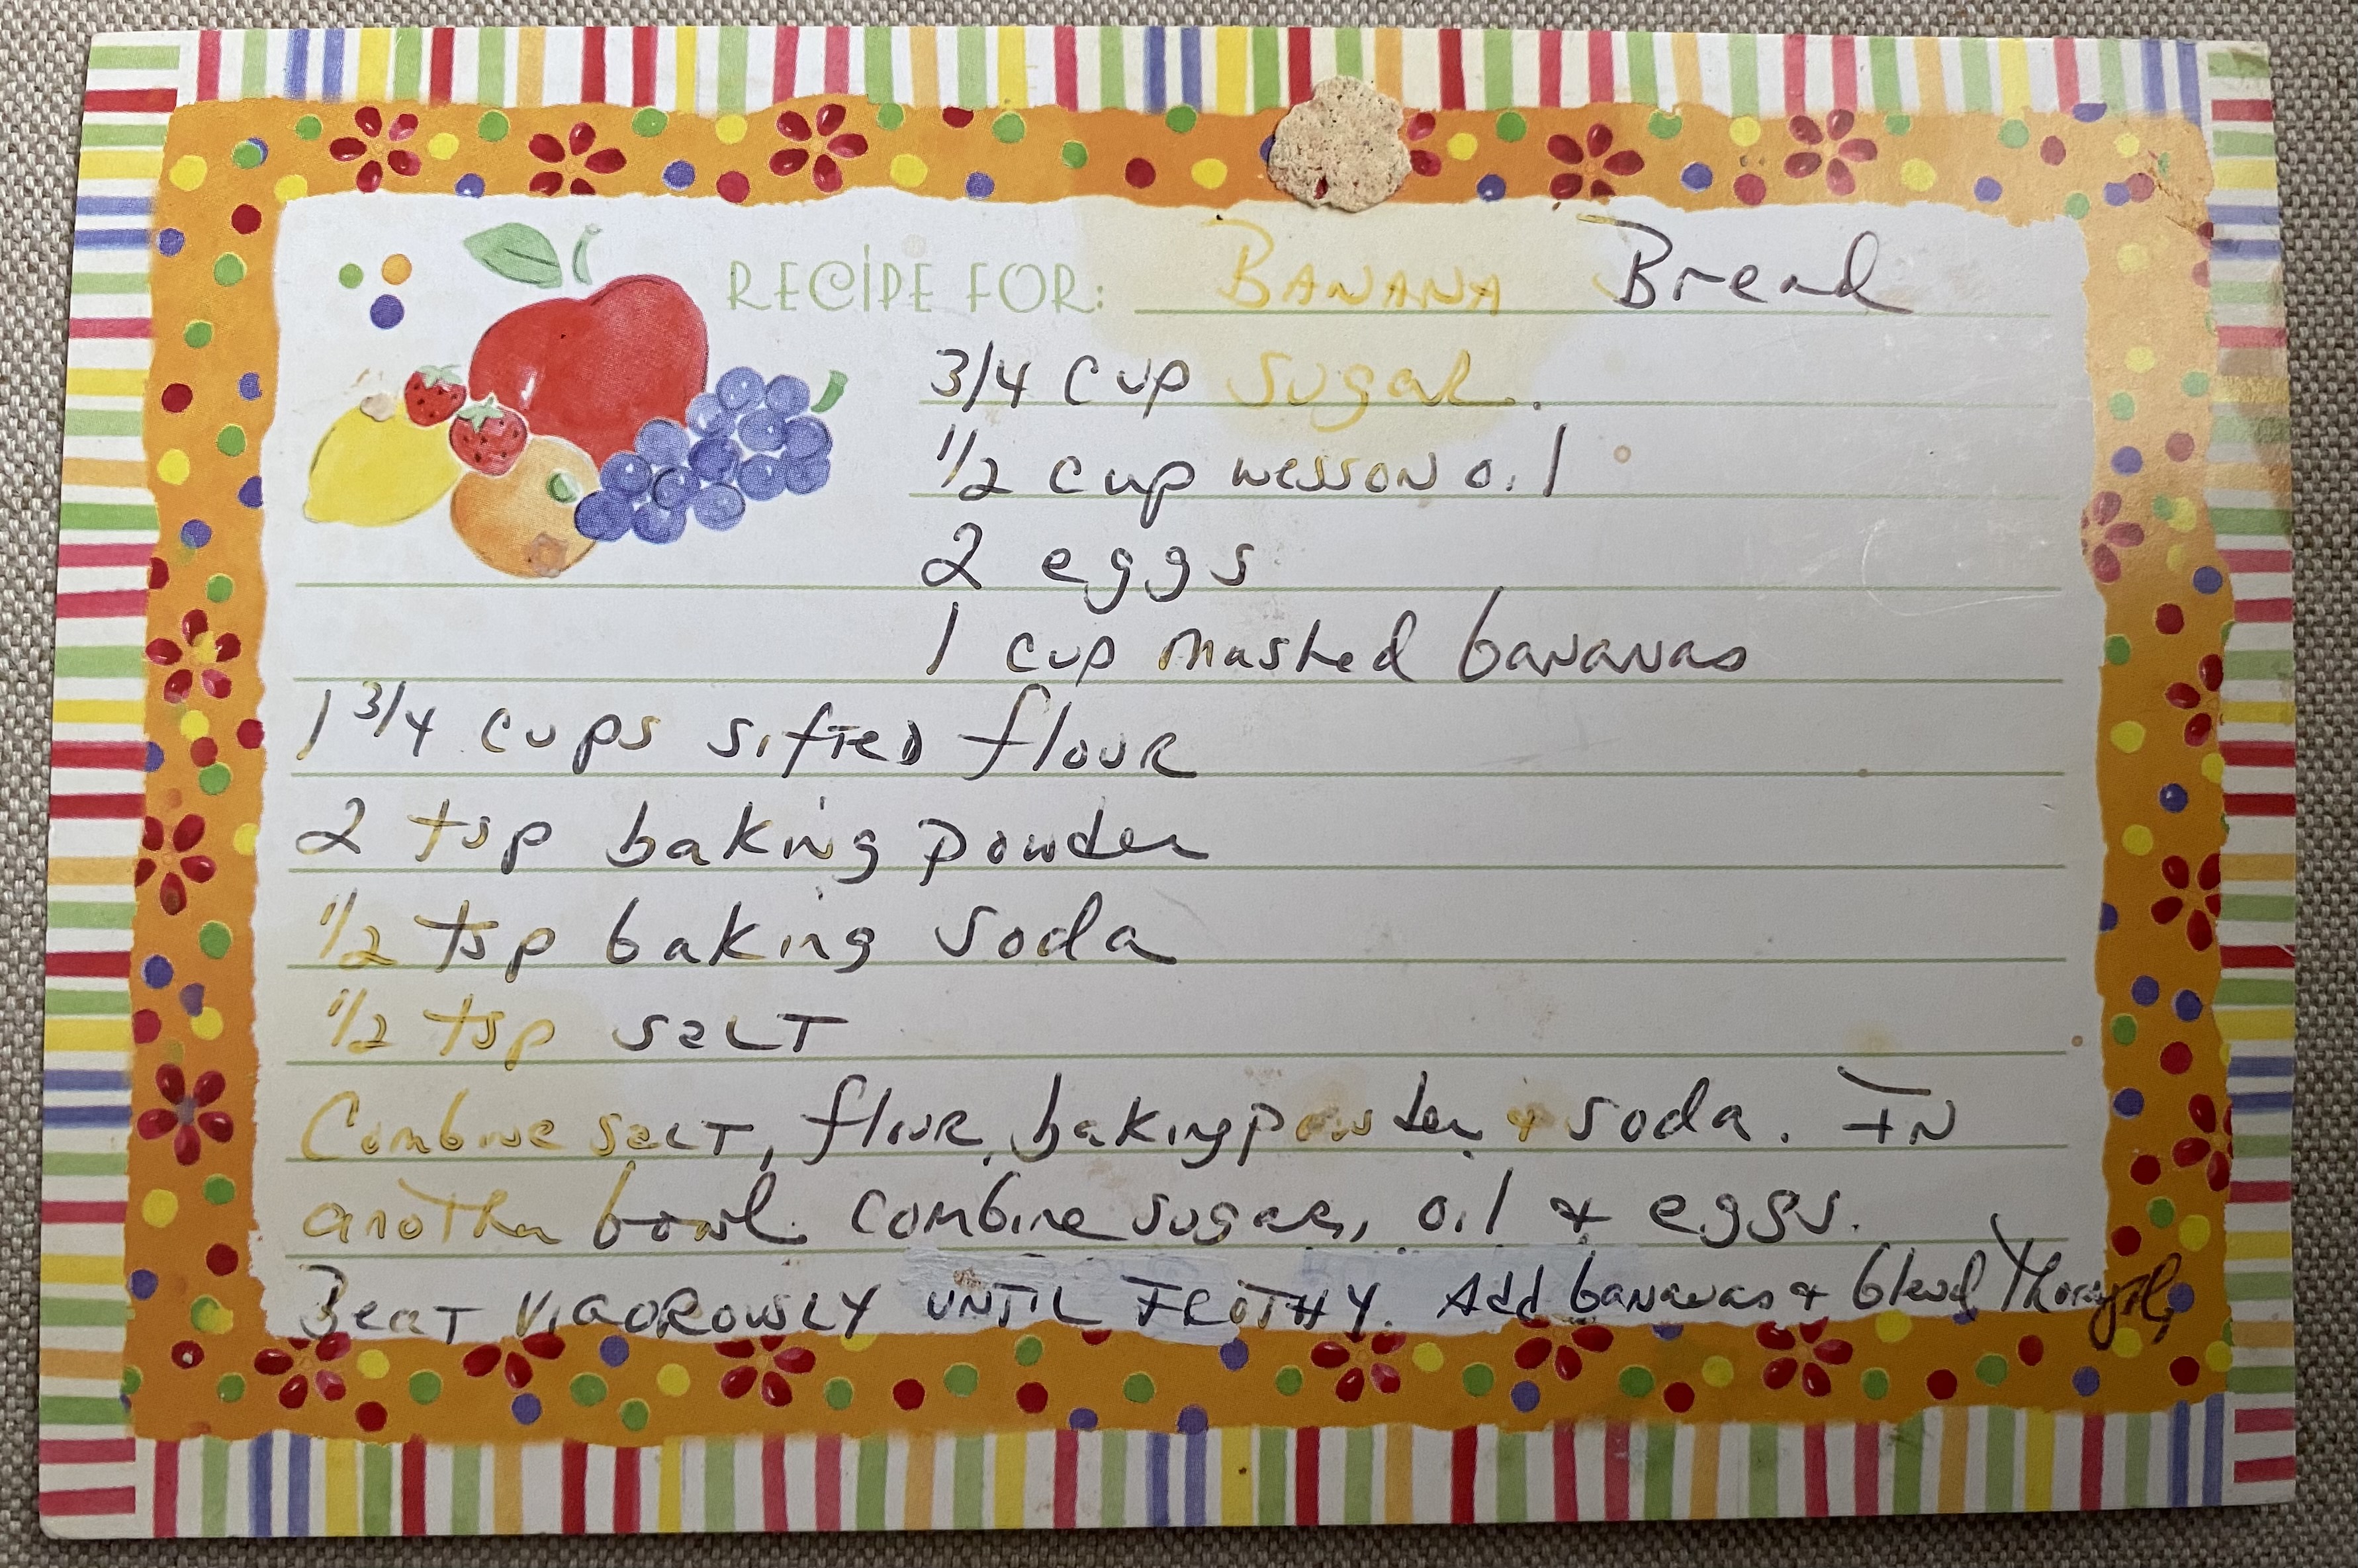 RECIPE FOR: BANANA Bread
3/4 cup sugar.
1/2 cup wesson oil
2 eggs
1 cup mashed bananas
1 3/4 cups sifted flour
2 tsp baking powder
1/2 tsp baking soda
1/2 tsp salt
Combine salt, flour, baking powder & soda. In
another bowl combine sugar, oil & eggs.
Beat VIGOROWSLY UNTIL FROTHY. Add bananas & blend Thoroughly